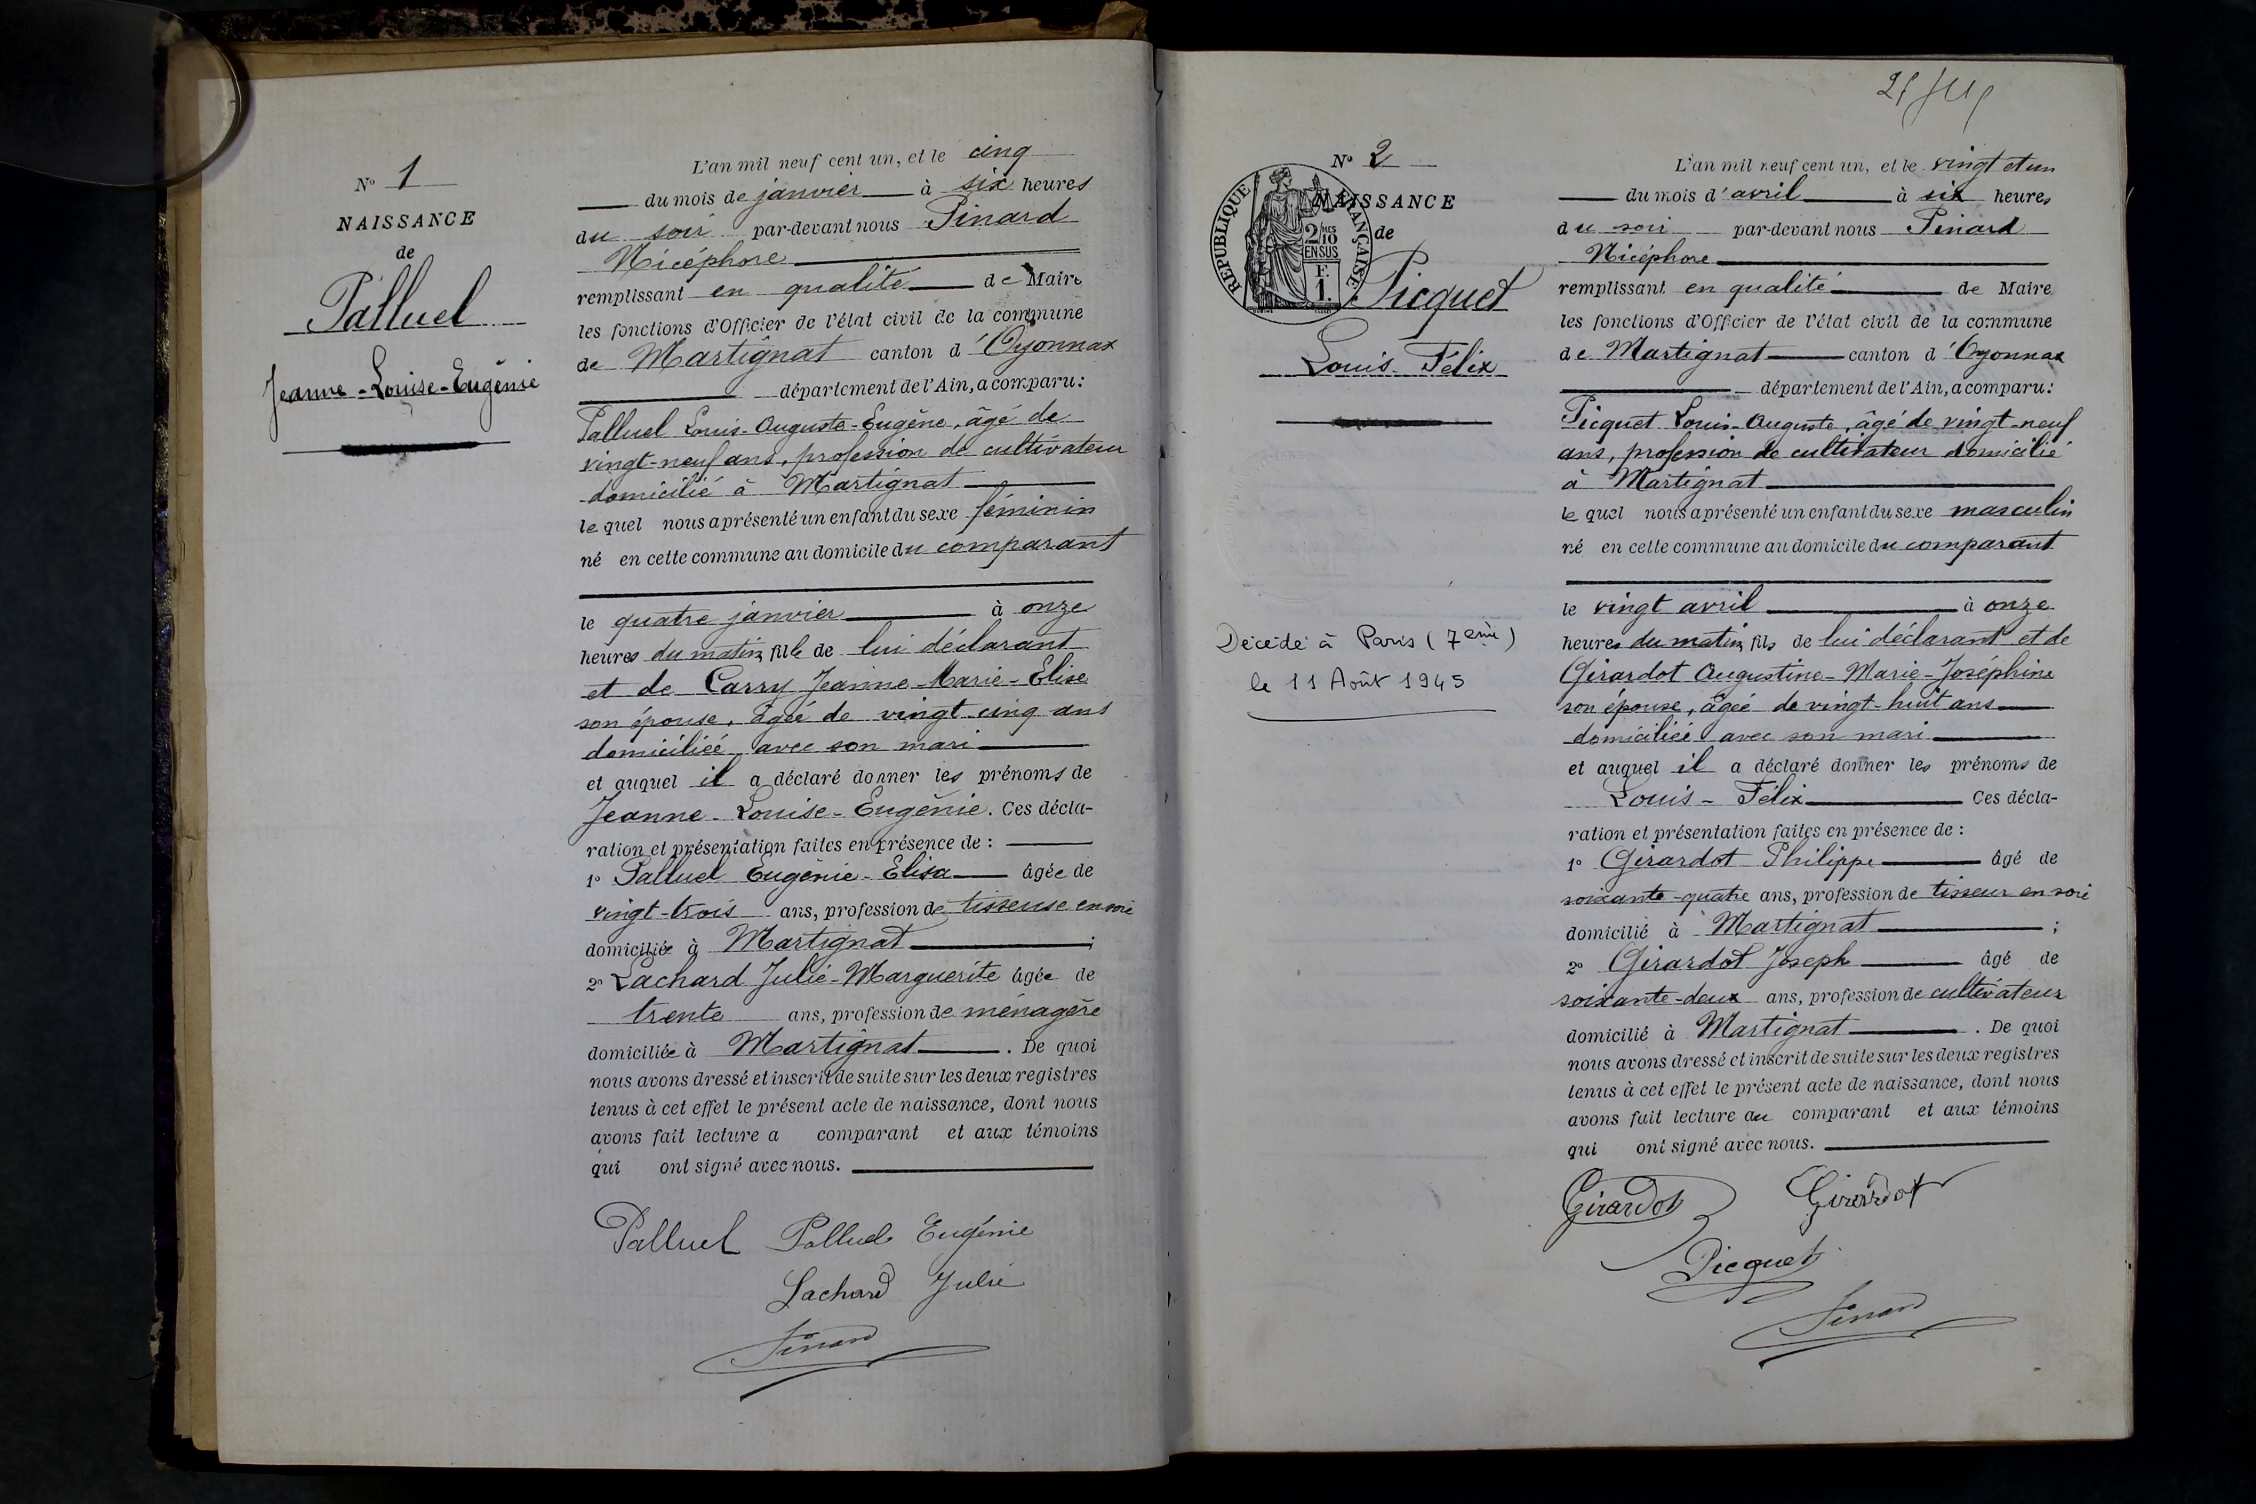 N° 1
NAISSANCE
de
Palluel
Jeanne-Louise-Eugénie
L'an mil neuf cent un, et le cinq
du mois de janvier à six heures
du soir par-devant nous Pinard
Nicéphore
remplissant en qualité de Maire
les fonctions d'Officier de l'état civil de la commune
de Martignat canton d'Oyonnax
département de l'Ain, a comparu:
Palluel Louis-Auguste-Eugène, âgé de
vingt-neuf ans, profession de cultivateur
domicilié à Martignat
lequel nous a présenté un enfant du sexe féminin
né en cette commune au domicile du comparant
le quatre janvier à onze
heures du matin, fille de lui déclarant
et de Carry Jeanne-Marie-Elise
son épouse, âgée de vingt cinq ans
domiciliée avec son mari
et auquel il a déclaré donner les prénoms de
Jeanne-Louise-Eugénie. Ces décla-
ration et présentation faites en présence de :
1° Palluel Eugénie-Elisa âgée de
vingt-trois ans, profession de tisseuse en soie
domiciliée à Martignat ;
2° Lachard Julie-Marguerite âgée de
trente ans, profession de ménagère
domiciliée à Martignat . De quoi
nous avons dressé et inscrit de suite sur les deux registres
tenus à cet effet le présent acte de naissance, dont nous
avons fait lecture a comparant et aux témoins
qui ont signé avec nous.
Palluel Palluel Eugénie
Lachard Julie
Pinard
N° 2
NAISSANCE
de
RÉPUBLIQUE FRANÇAISE
2/10 EN SUS
F. 1.
Picquet
Louis Félix
Décédé à Paris (7eme)
le 11 Août 1945
L'an mil neuf cent un, et le vingt et un
du mois d'avril à six heures
du soir par-devant nous Pinard
Nicéphore
remplissant en qualité de Maire
les fonctions d'Officier de l'état civil de la commune
de Martignat canton d'Oyonnax
département de l'Ain, a comparu:
Picquet Louis-Auguste, âgé de vingt-neuf
ans, profession de cultivateur domicilié
à Martignat
lequel nous a présenté un enfant du sexe masculin
né en cette commune au domicile du comparant
le vingt avril à onze
heures du matin, fils de lui déclarant et de
Girardot Augustine-Marie-Joséphine
son épouse, âgée de vingt-huit ans
domiciliée avec son mari
et auquel il a déclaré donner les prénoms de
Louis-Félix Ces décla-
ration et présentation faites en présence de :
1° Girardot Philippe âgé de
soixante-quatre ans, profession de tisseur en soie
domicilié à Martignat ;
2° Girardot Joseph âgé de
soixante-deux ans, profession de cultivateur
domicilié à Martignat . De quoi
nous avons dressé et inscrit de suite sur les deux registres
tenus à cet effet le présent acte de naissance, dont nous
avons fait lecture au comparant et aux témoins
qui ont signé avec nous.
Girardot Girardot
Picquet
Pinard